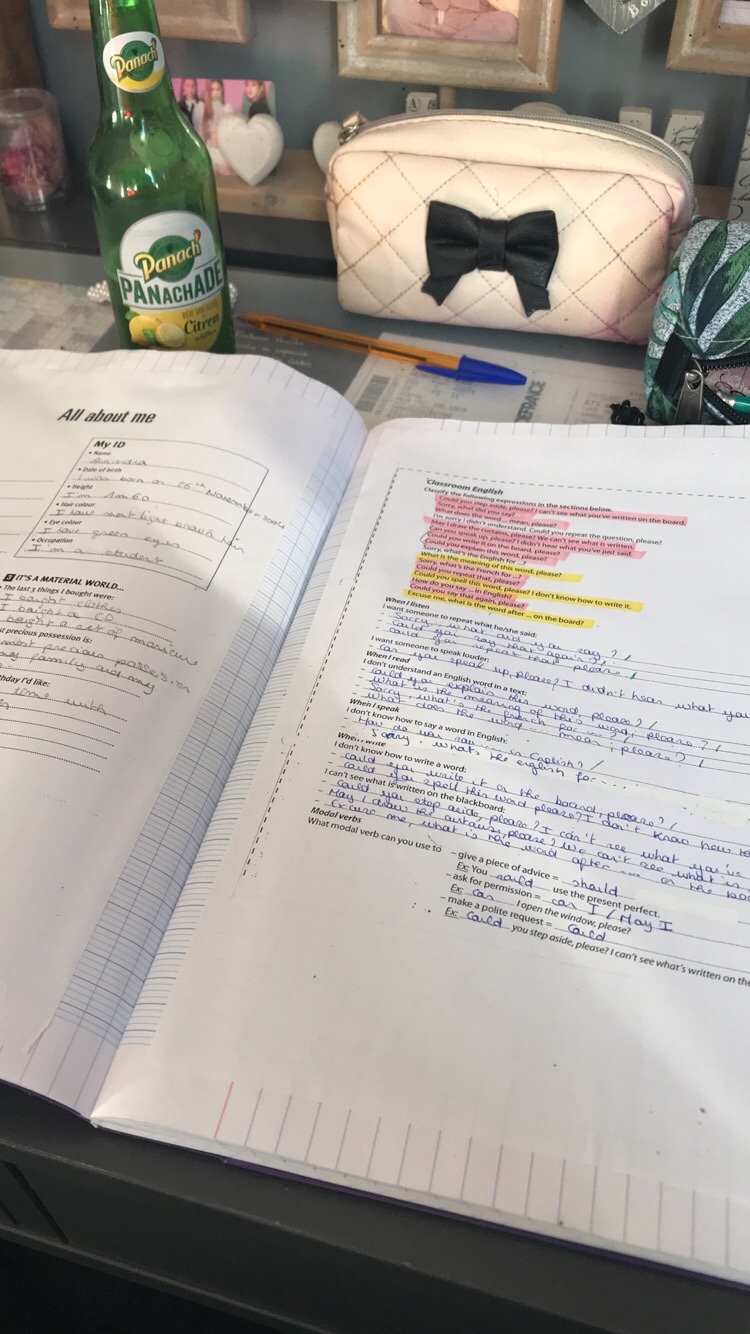 Panach'
Panach'
PANACHADE
Citron
All about me
My ID
• Name
• Date of birth
I was born on 26th November 2004
• Height
I'm 1m60
• Hair colour
I have short light brown hair
• Eye colour
I have green eyes
• Occupation
I'm a student
IT'S A MATERIAL WORLD...
The last 3 things I bought were:
I bought clothes
I bought a CD
bought a set of manicure
t precious possession is:
most precious possession
my family and my
thday I'd like:
time with
FRANCE
Classroom English
Classify the following expressions in the sections below.
Could you step aside, please? I can't see what you've written on the board.
Sorry, what did you say?
What does the word ... mean, please?
I'm sorry I didn't understand. Could you repeat the question, please?
May I draw the curtains, please? We can't see what is written.
Can you speak up, please? I didn't hear what you've just said.
Could you write it on the board, please?
Could you explain this word, please?
Sorry, what's the English for ...?
What is the meaning of this word, please?
Sorry, what's the French for ...?
Could you repeat that, please?
Could you spell this word, please? I don't know how to write it.
How do you say ... in English?
Could you say that again, please?
Excuse me, what is the word after ... on the board?
When I listen
I want someone to repeat what he/she said:
- Sorry, what did you say? /
- Could you say that again? /
- Could you repeat that, please /
I want someone to speak louder:
- Can you speak up, please? I didn't hear what you
When I read
I don't understand an English word in a text:
- Could you explain this word, please? /
- What is the meaning of this word, please? /
- Sorry, what's the french for ... ? /
- What does the word ... mean, please?
When I speak
I don't know how to say a word in English:
- How do you say ... in English? /
- Sorry, what's the english for ...
When I write
I don't know how to write a word:
- Could you write it on the board, please? /
- Could you spell this word please? I don't know how to
I can't see what is written on the blackboard:
- Could you step aside, please? I can't see what you've
- May I draw the curtains, please? We can't see what is
- Excuse me, what is the word after ... on the boa
Modal verbs
What modal verb can you use to
- give a piece of advice = should
Ex: You use the present perfect.
- ask for permission = can I / May I
Ex: Can I open the window, please?
- make a polite request = Could
Ex: Could you step aside, please? I can't see what's written on the